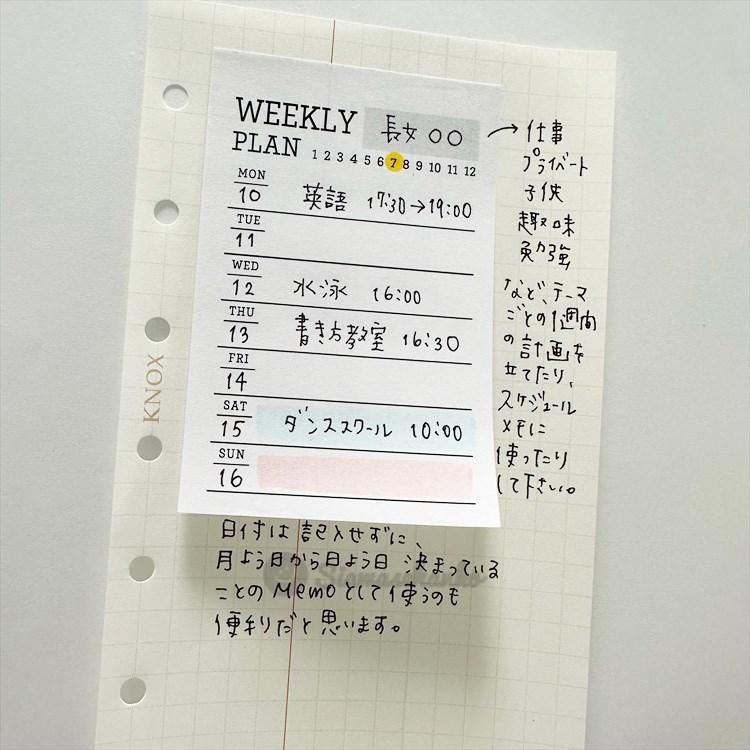 WEEKLY
PLAN
長女 〇〇
1 2 3 4 5 6 7 8 9 10 11 12
MON
10 英語 17:30→19:00
TUE
11
WED
12 水泳 16:00
THU
13 書き方教室 16:30
FRI
14
SAT
15 ダンススクール 10:00
SUN
16
→仕事
プライベート
子供
趣味
勉強
など、テーマ
ごとの1週間
の計画を
立てたり、
スケジュール
メモに
使ったり
して下さい。
日付は記入せずに、
月よう日から日よう日 決まっている
ことのMemoとして使うのも
便利だと思います。
KNOX